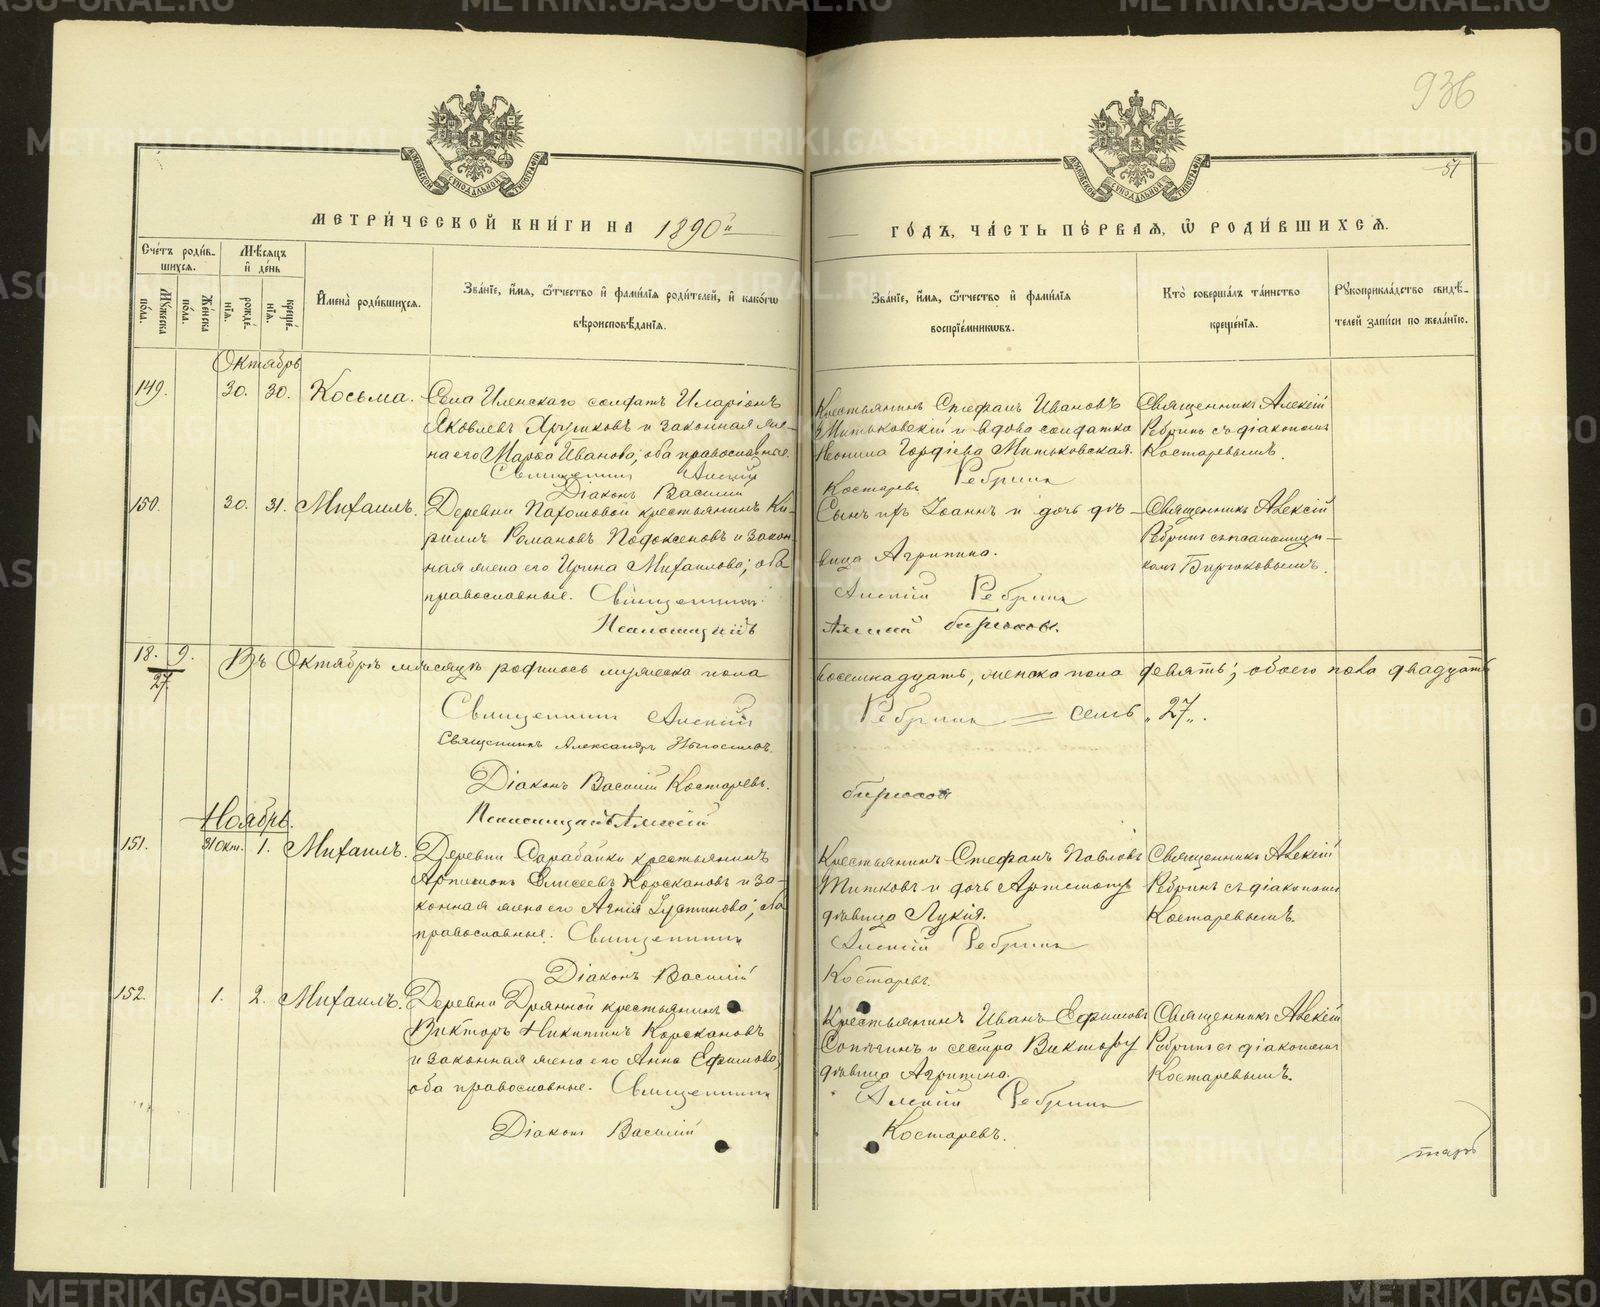 936
51
МЕТРИ́ЧЕСКОЙ КНИ́ГИ НА 1890й
ГО́ДЪ, ЧА́СТЬ ПЕ́РВАЯ, Ѿ РОДИ́ВШИХСЯ.
Счетъ роди́вшихся.
Мѣ́сяцъ и де́нь
Мужеска по́ла.
Же́нска по́ла.
рожде́нїя.
креще́нїя.
И҆мена̀ роди́вшихся.
Зва́нїе, и҆́мя, ѻ҆́тчество и҆ фами́лїя роди́телей, и҆ како́гѡ вѣроисповѣ́данїя.
Зва́нїе, и҆́мя, ѻ҆́тчество и҆ фами́лїя воспрїе́мниковъ.
Кто̀ соверша́лъ та́инство креще́нїя.
Рꙋкоприкла́дство свидѣ́телей за́писи по жела́нїю.
Октябрь
149. 30. 30. Косьма.
Села Иленскаго солдатъ Иларіонъ
Яковлевъ Хрушковъ и законная же-
на его Марѳа Иванова; оба православные.
Священникъ Алексій
Діаконъ Василій
Крестьянинъ Стефанъ Ивановъ
Митьковскій и вдова солдатка
Неонила Гордіева Митьковская.
Ребринъ
Костаревъ
Священникъ Алексій
Ребринъ съ діакономъ
Костаревымъ.
150. 30. 31. Михаилъ.
Деревни Пахомовой крестьянинъ Ки-
риллъ Романовъ Подоксеновъ и закон-
ная жена его Ирина Михаилова; оба
православные. Священникъ
Псаломщикъ
Сынъ ихъ Іоаннъ и дочь дѣ-
вица Агрипина.
Алексій Ребринъ
Алексій Бирюковъ.
Священникъ Алексій
Ребринъ съ псаломщи-
комъ Бирюковымъ.
18. 9.
27.
Въ Октябрѣ мѣсяцѣ родилось мужеска пола
восемнадцать, женска пола девять; обоего пола двадцать
Священникъ Алексій Ребринъ = семь „27„.
Священникъ Александръ
Діаконъ Василій Костаревъ.
Псаломщикъ Алексій Бирюковъ
Ноябрь.
151. 31 Окт. 1. Михаилъ.
Деревни Сарабайки крестьянинъ
Артемонъ Елисеевъ Корскановъ и за-
конная жена его Агнія; оба
православные. Священникъ
Діаконъ Василій
Крестьянинъ Стефанъ Павловъ
Титковъ и дочь Артемону
дѣвица Лукія.
Алексій Ребринъ
Костаревъ.
Священникъ Алексій
Ребринъ съ діакономъ
Костаревымъ.
152. 1. 2. Михаилъ.
Деревни Дрянной крестьянинъ
Викторъ Никитинъ Корскановъ
и законная жена его Анна Ефимова;
оба православные. Священникъ
Діаконъ Василій
Крестьянинъ Иванъ Ефимовъ
Сопегинъ и сестра Виктору
дѣвица Агрипина.
Алексій Ребринъ
Костаревъ.
Священникъ Алексій
Ребринъ съ діакономъ
Костаревымъ.
METRIKI.GASO-URAL.RU